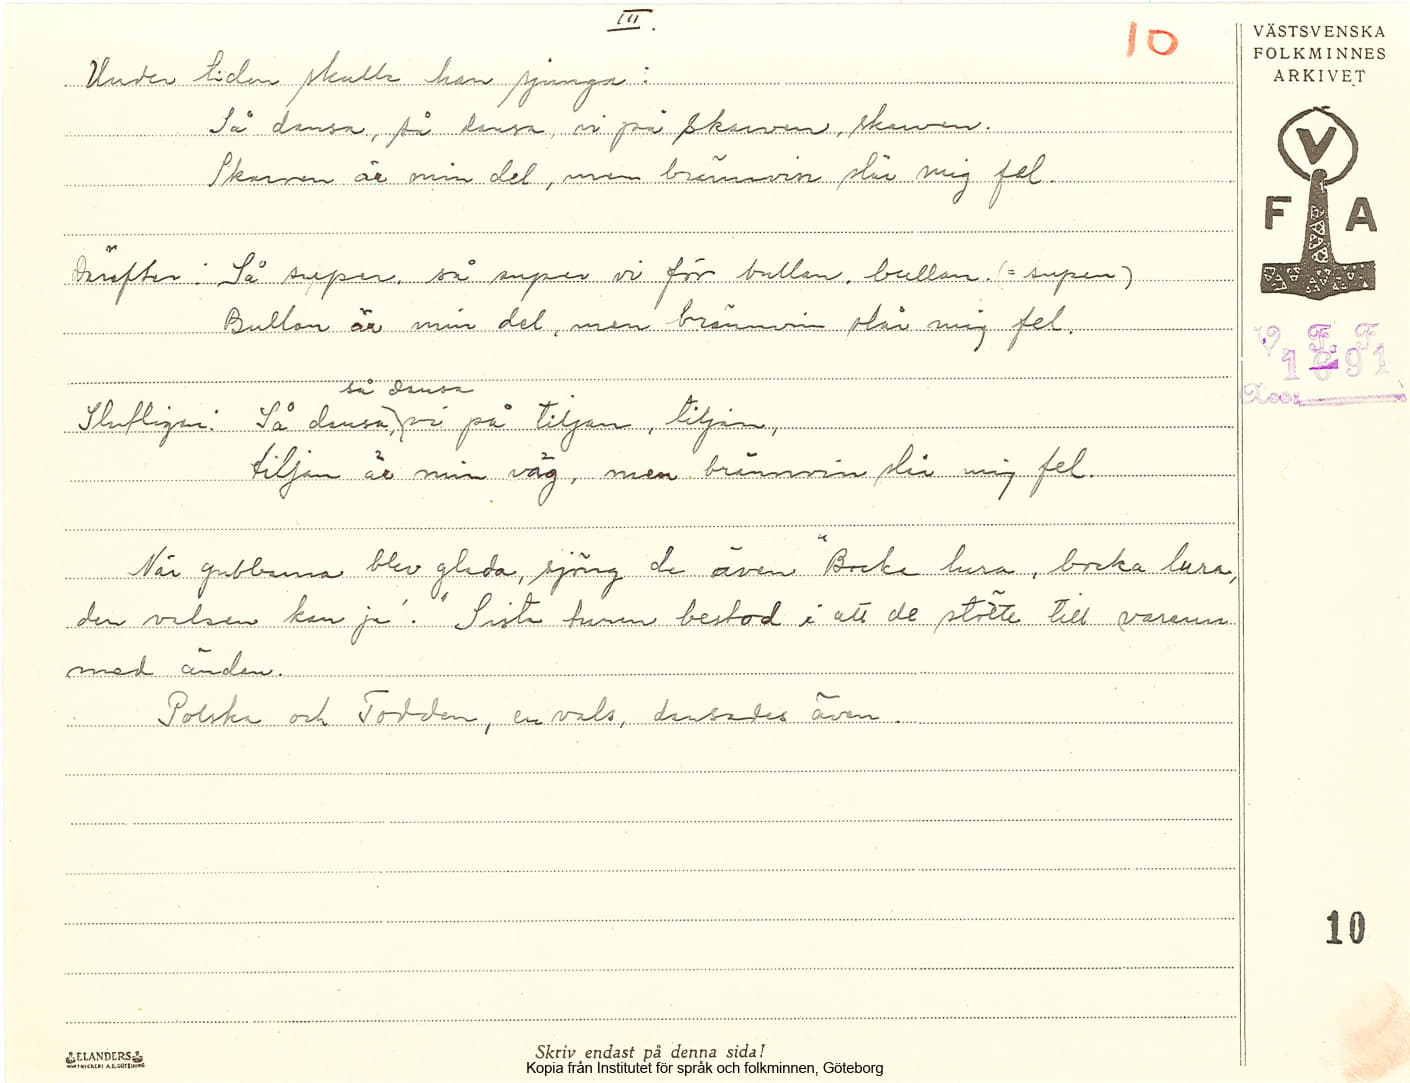 III.
10
VÄSTSVENSKA
FOLKMINNES
ARKIVET
Under tiden skulle han sjunga:
Så dansa, så dansa, vi på skarven, skarven.
Skarven är min del, men brännvin slår mig fel.
Därefter: Så super, så super vi för bullan, bullan. (= supen)
Bullan är min del, men brännvin slår mig fel.
så dansa
Slutligen: Så dansa, vi på tiljan, tiljan,
tiljan är min väg, men brännvin slår mig fel.
När gubbarna blev glada, sjöng de även "Bocka lura, bocka lura,
den valsen kan ja'." Sista turen bestod i att de stötte till varann
med ändan.
Polska och Todden, en vals, dansades även.
V
F A
V. F. F.
1691
10
ELANDERS
Skriv endast på denna sida!
Kopia från Institutet för språk och folkminnen, Göteborg